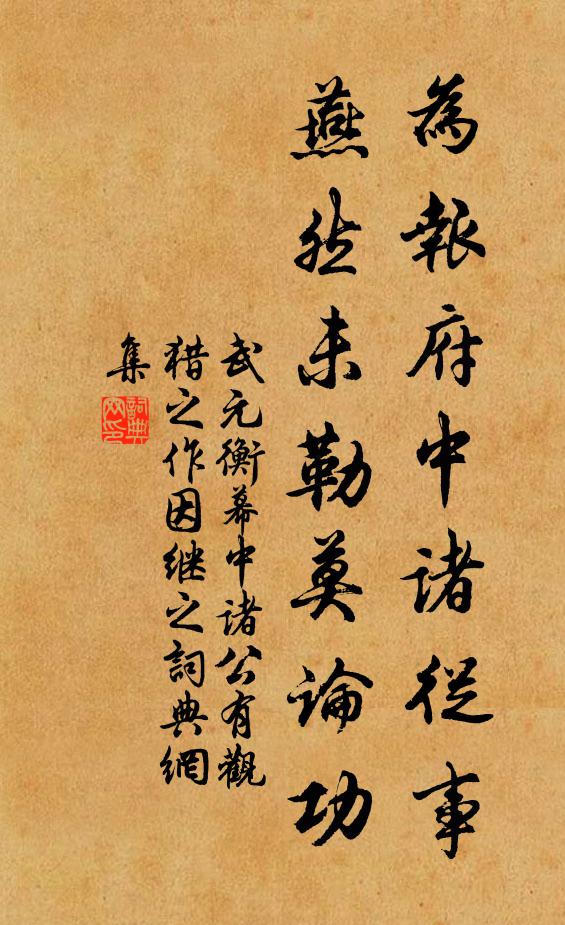 為報府中諸從事
燕然未勒莫論功
武元衡幕中诸公有觀
猎之作因继之詞典網
集
詞典
网印